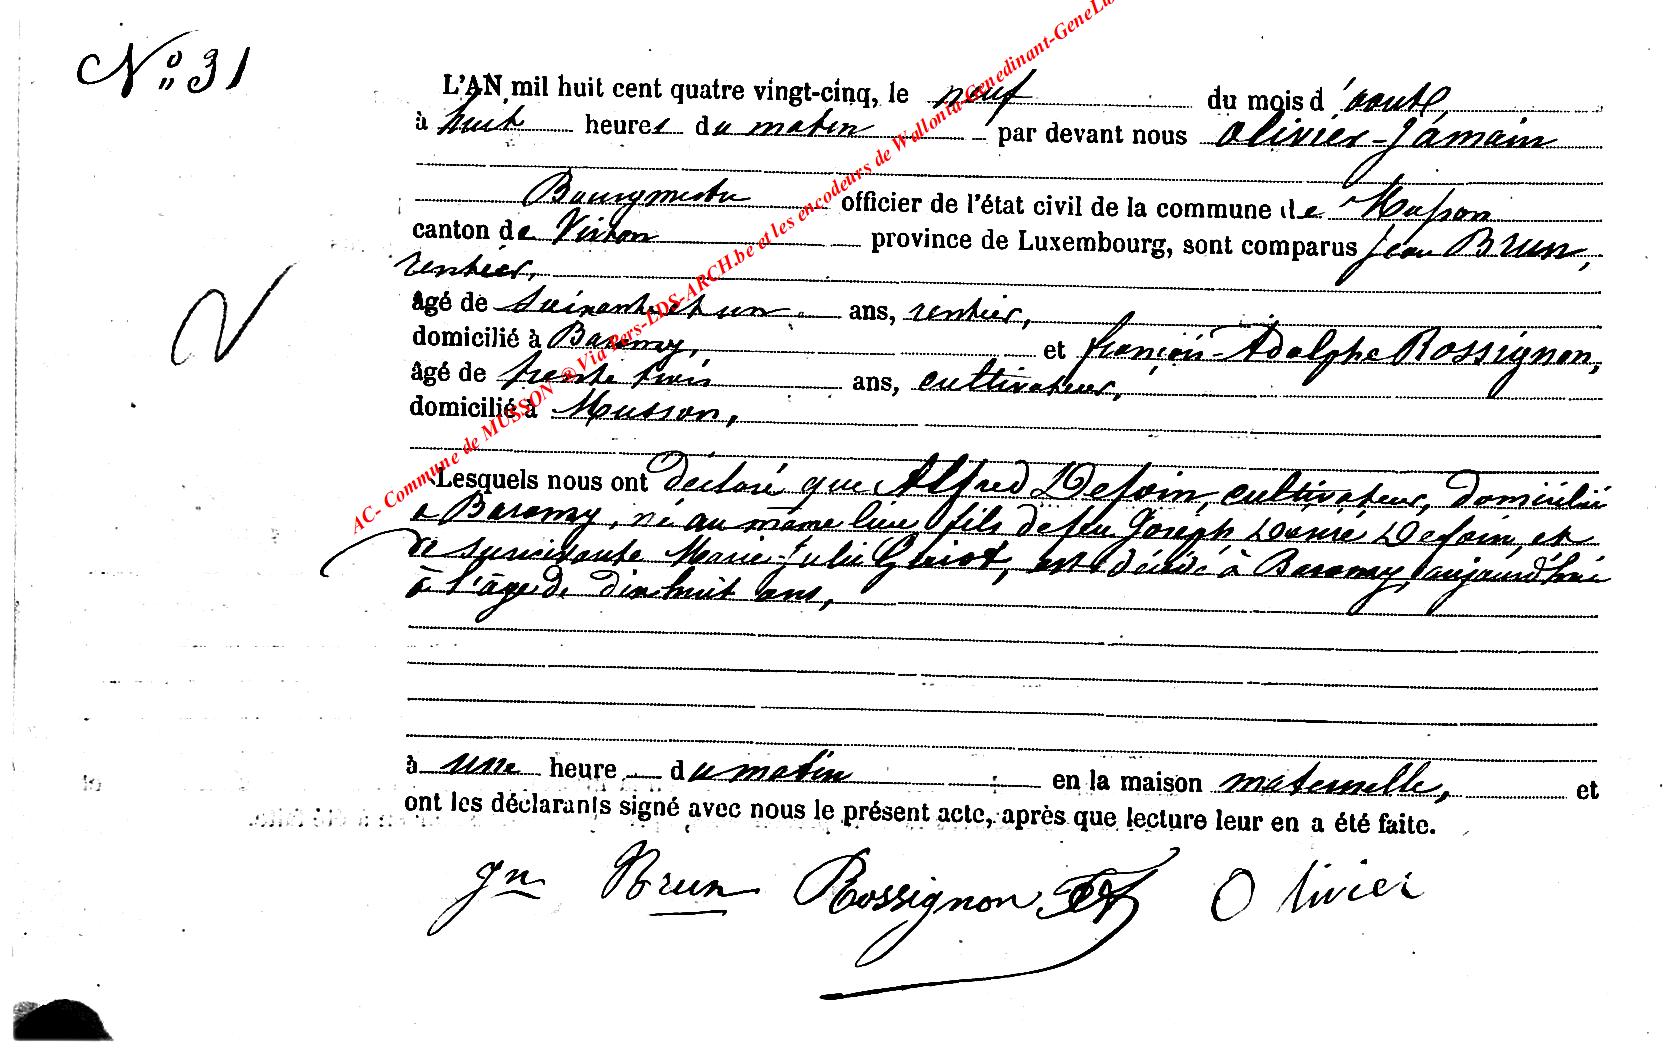 N° 31
L'AN mil huit cent quatre vingt-cinq, le neuf du mois d'août,
à huit heures du matin par devant nous Olivier-Jamain
Bourgmestre officier de l'état civil de la commune de Musson
canton de Virton province de Luxembourg, sont comparus Jean Brun,
rentier,
âgé de soixante et un ans, rentier,
domicilié à Baranzy, et françois-Adolphe Rossignon,
âgé de trente trois ans, cultivateur,
domicilié à Musson,
Lesquels nous ont déclaré que Alfred Defoin, cultivateur, domicilié
à Baranzy, né au même lieu, fils de feu Joseph Désiré Defoin, et
de survivante Marie-Julie Guiot, est décédé à Baranzy, aujourd'hui
à l'âge de dix huit ans,
à une heure du matin en la maison maternelle, et
ont les déclarants signé avec nous le présent acte, après que lecture leur en a été faite.
Jn Brun Rossignon Olivier
AC- Commune de MUSSON ® Via Pers-LDS-ARCH.be et les encodeurs de Wallonia-Genedinant-GeneLu